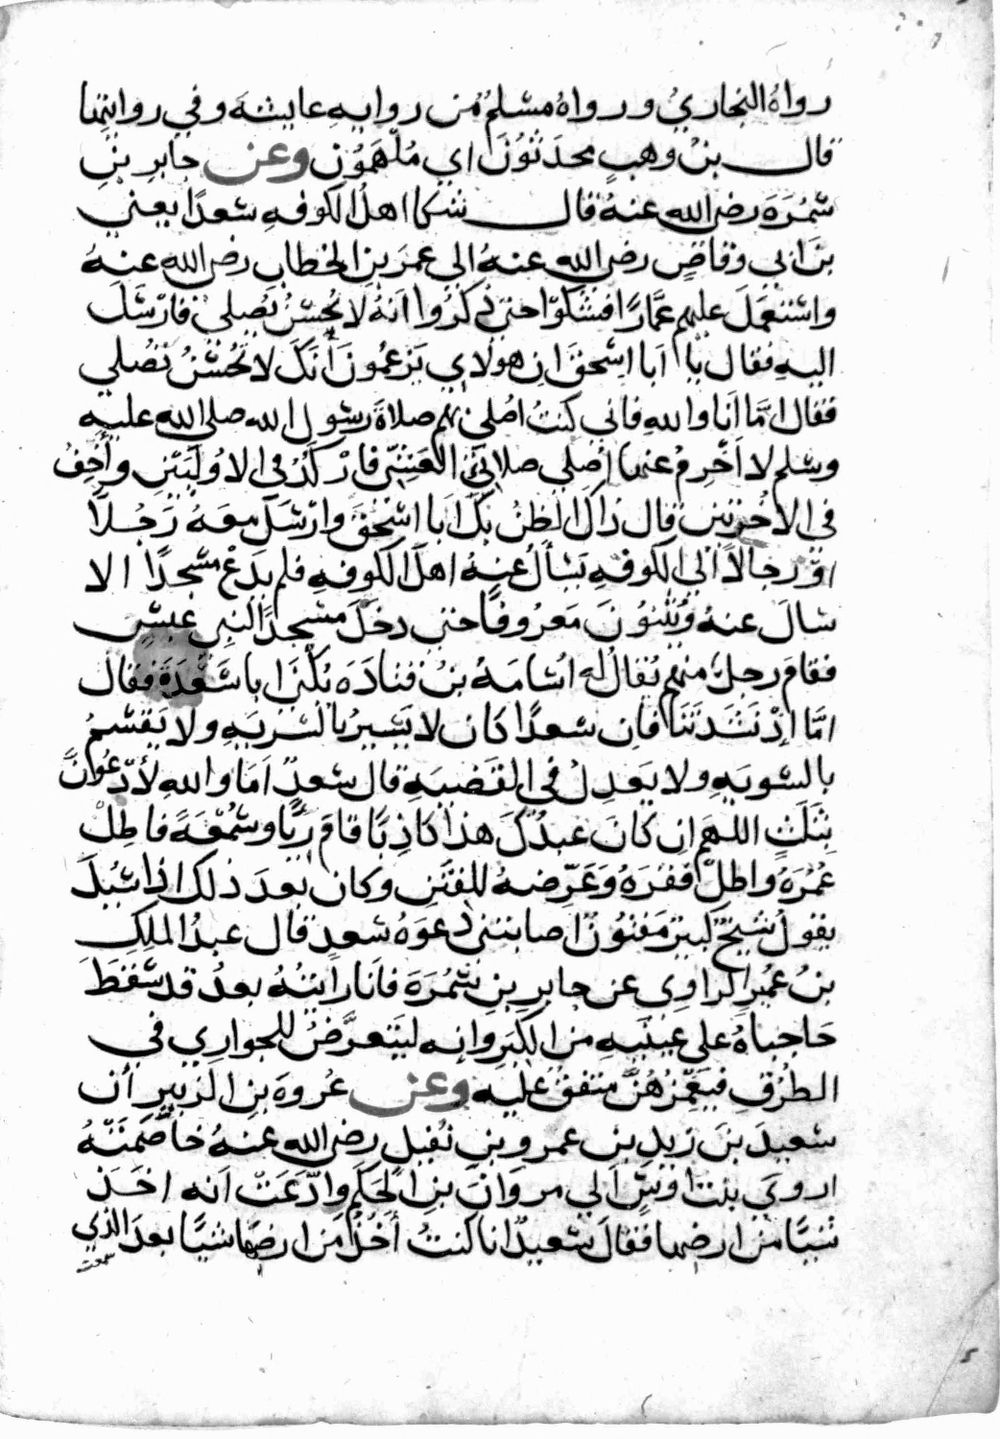 رواهُ البخاريُ ورواهُ مسْلمٌ من روايهِ عايشةَ وفي روايتهما
قال بنُ وهبٍ محدَثوُنَ اي مُلْهَمُون وعن جابرِ بنِ
سَمُرَةَ رضي الله عنهُ قال شكا اهلُ الكوفهِ سَعدًا يعني
بنَ ابي وقاصٍ رضي الله عنهُ الي عمرَ بن الخطاب رضي الله عنهُ
واسْتعمَلَ عليهم عَمَّارًا فشكوْا حتي ذكرُوا انهُ لا يُحْسنُ يُصلي فارْسَلَ
اليهِ فقال يا ابا اسْحقَ ان هولاي يَزعمُونَ أنكَ لا تُحْسنُ تُصلي
فقال امَّا انا والله فاني كنتُ اصُلي بهم صلاةَ رسُول الله صلي الله عليه
وسْلم لا اَخْرِمُ عنها اصُلي صلاتيَ العَشِيّ فارْكدُ في الاوُليَيْنِ وأُخِفُ
في الاخْريَيْن قال ذاكَ الظنُ بكَ ابا اسْحقَ وارْسَلَ معهُ رَجُلاً
اوْ رجالاً الي الكوفهِ يَسْألُ عنهُ اهلَ الكوفهِ فلم يَدَعْ مسْجدًا الا
سَالَ عنهُ ويُثنوُنَ مَعرُوفًا حتي دخلَ مسْجدًا لبني عبسٍ
فقامَ رجلٌ منهم يُقالُ لهُ اسُامَهُ بنُ قتادَه يُكنَي ابا سَعْدَةَ فقال
امَّا إذْ نَشَدتَنَا فإن سَعدًا كان لا يَسيرُ بالسّريَهِ ولا يَقسْمُ
بالسّويهِ ولا يَعدِلُ في القضيهِ قال سَعدٌ امَا والله لأدْعُوَنَّ
بثلثٍ اللهم ان كانَ عبدُكَ هذا كاذِبًا قامَ رِيًا وسُمْعَةً فاطِلْ
عُمُرَهُ واطِلْ فقرَهُ وَعَرِّضهُ للفتنِ وكان بعدَ ذلك اذا سُئلَ
يقولُ شيخٌ كبيرٌ مَفْتوُنٌ اصابتني دَعوَهُ سَعدٍ قال عبدُ الملِكِ
بنُ عُميرٍ الراوي عن جابرِ بنِ سَمُرَةَ فانا رأيتُهُ بعدُ قد سَقطَ
حَاجباهُ علي عينَيهِ من الكبَرِ وإنه ليَتَعرَّضُ للجواري في
الطُرُقِ فيَغْمِزُهُنَّ متفقٌ عليه وعن عُروهَ بنِ الزبيرِ أن
سَعيدَ بنَ زيدِ بنِ عمرو بنِ نُفيلٍ رضي الله عنهُ خاصَمَتْهُ
اروَي بنتُ اوْسٍ الي مروَانَ بنِ الحَكمِ وادَّعَتْ انه اخَذ
شيًا من ارضها فقالَ سَعيدٌ انا كنتُ أخُذُ من ارضها شيًا بعدَ الذي
سَمعت